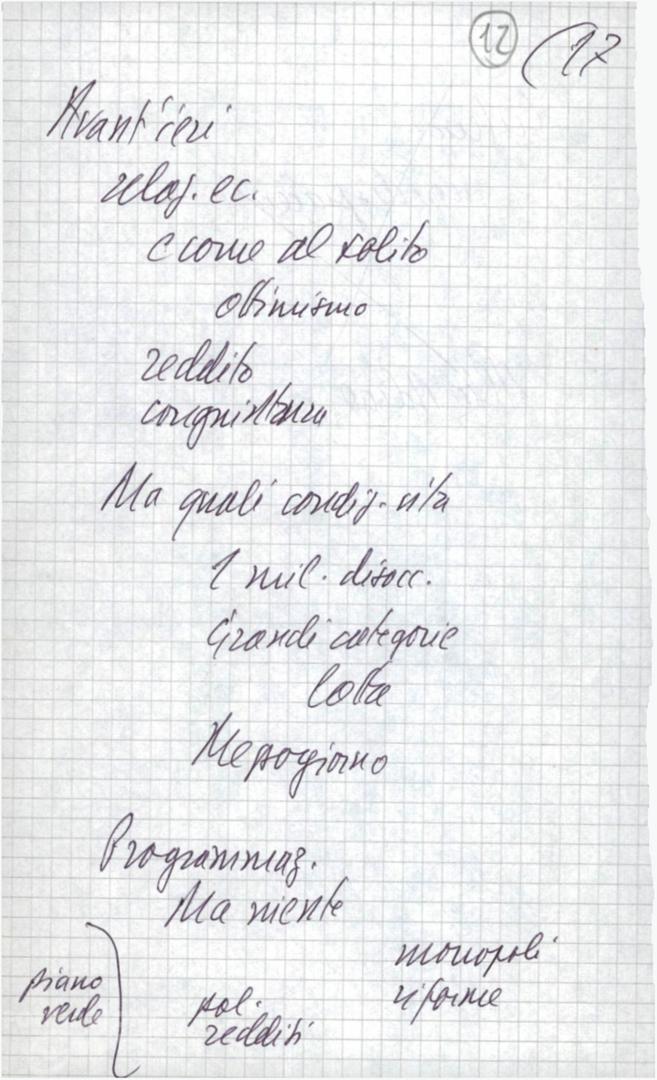 12 17
Avant'ieri
relaz. ec.
e come al solito
ottimismo
reddito
congiuntura
Ma quali condiz. vita
1 mil. disocc.
Grandi categorie
lotta
Mezzogiorno
Programmaz.
Ma niente
monopoli
riforme
piano
verde
pol.
redditi